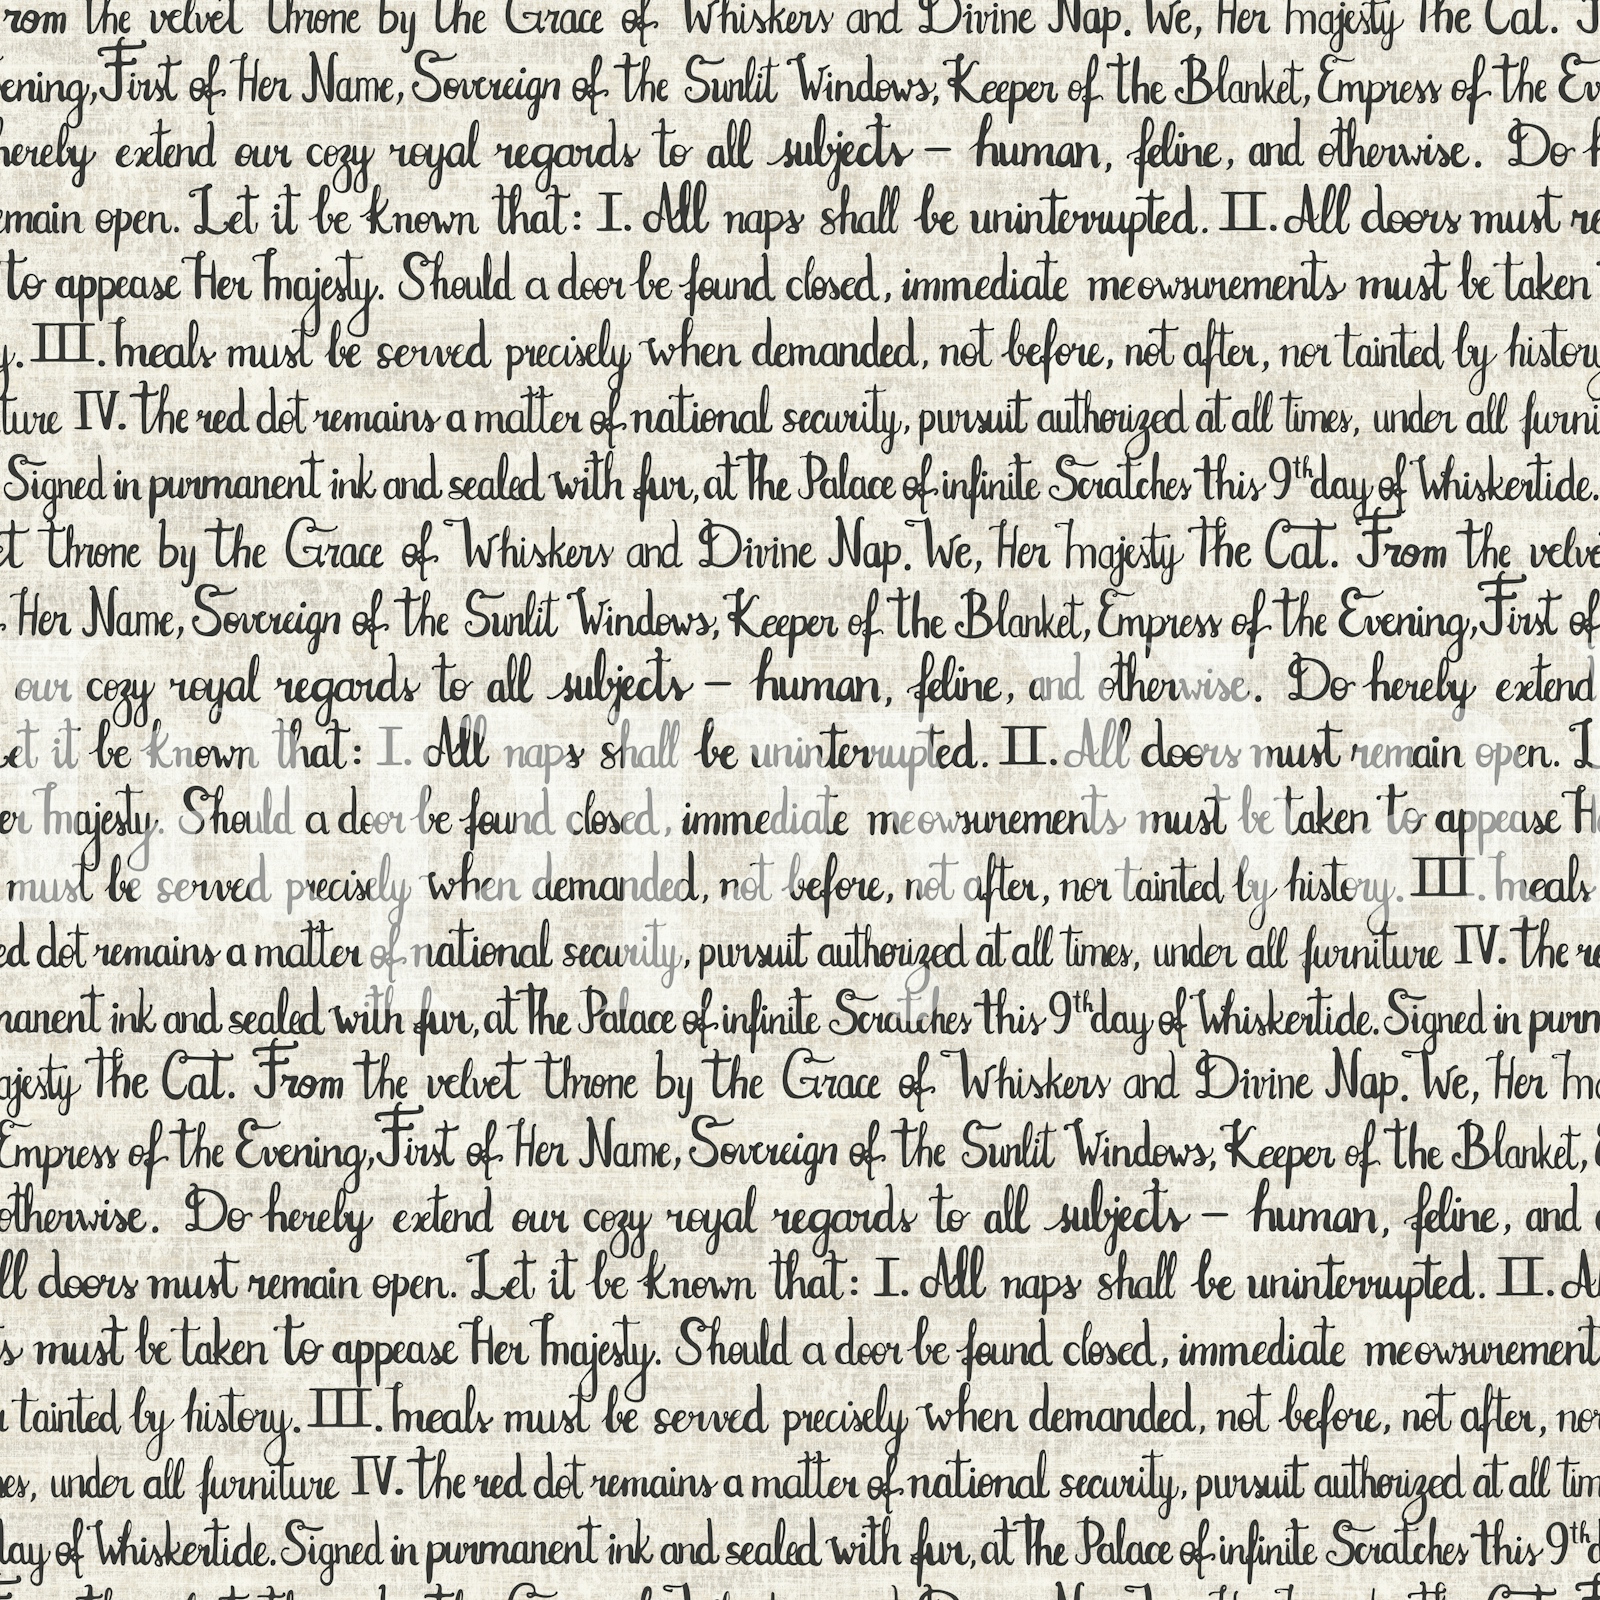 rom the velvet throne by the Grace of Whiskers and Divine Nap. We, Her Majesty The Cat.
ening, First of Her Name, Sovereign of the Sunlit Windows, Keeper of the Blanket, Empress of the Ev
hereby extend our cozy royal regards to all subjects – human, feline, and otherwise. Do h
emain open. Let it be known that: I. All naps shall be uninterrupted. II. All doors must re
to appease Her Majesty. Should a door be found closed, immediate meowsurements must be taken
y. III. Meals must be served precisely when demanded, not before, not after, nor tainted by history
ture IV. The red dot remains a matter of national security, pursuit authorized at all times, under all furni
Signed in purrmanent ink and sealed with fur, at The Palace of infinite Scratches this 9th day of Whiskertide.
et throne by the Grace of Whiskers and Divine Nap. We, Her Majesty The Cat. From the velve
Her Name, Sovereign of the Sunlit Windows, Keeper of the Blanket, Empress of the Evening, First of
our cozy royal regards to all subjects – human, feline, and otherwise. Do hereby extend
Let it be known that: I. All naps shall be uninterrupted. II. All doors must remain open. L
er Majesty. Should a door be found closed, immediate meowsurements must be taken to appease H
must be served precisely when demanded, not before, not after, nor tainted by history. III. Meals
ed dot remains a matter of national security, pursuit authorized at all times, under all furniture IV. The re
manent ink and sealed with fur, at The Palace of infinite Scratches this 9th day of Whiskertide. Signed in purr
ajesty The Cat. From the velvet throne by the Grace of Whiskers and Divine Nap. We, Her Ma
Empress of the Evening, First of Her Name, Sovereign of the Sunlit Windows, Keeper of the Blanket, E
otherwise. Do hereby extend our cozy royal regards to all subjects – human, feline, and o
ll doors must remain open. Let it be known that: I. All naps shall be uninterrupted. II. Al
s must be taken to appease Her Majesty. Should a door be found closed, immediate meowsurement
tainted by history. III. Meals must be served precisely when demanded, not before, not after, nor
es, under all furniture IV. The red dot remains a matter of national security, pursuit authorized at all tim
day of Whiskertide. Signed in purrmanent ink and sealed with fur, at The Palace of infinite Scratches this 9th d